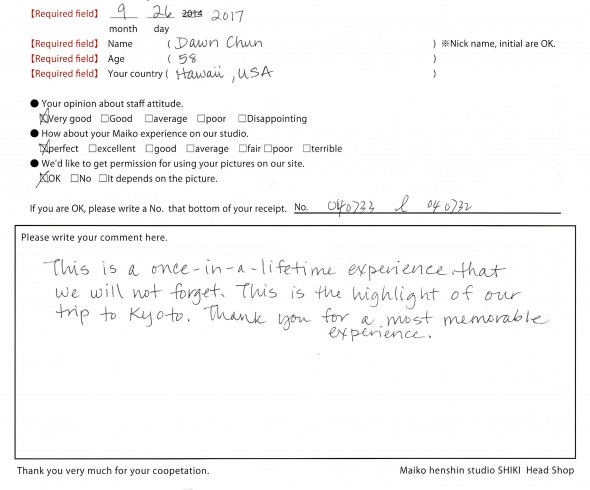 【Required field】 9 26 2014 2017
month day
【Required field】 Name ( Dawn Chun ) ※Nick name, initial are OK.
【Required field】 Age ( 58 )
【Required field】 Your country ( Hawaii, USA )
● Your opinion about staff attitude.
☒Very good □Good □average □poor □Disappointing
● How about your Maiko experience on our studio.
☒perfect □excellent □good □average □fair □poor □terrible
● We'd like to get permission for using your pictures on our site.
☒OK □No □It depends on the picture.
If you are OK, please write a No. that bottom of your receipt. No. 040733 & 040732
Please write your comment here.
This is a once-in-a-lifetime experience that
we will not forget. This is the highlight of our
trip to Kyoto. Thank you for a most memorable
experience.
Thank you very much for your coopetation. Maiko henshin studio SHIKI Head Shop